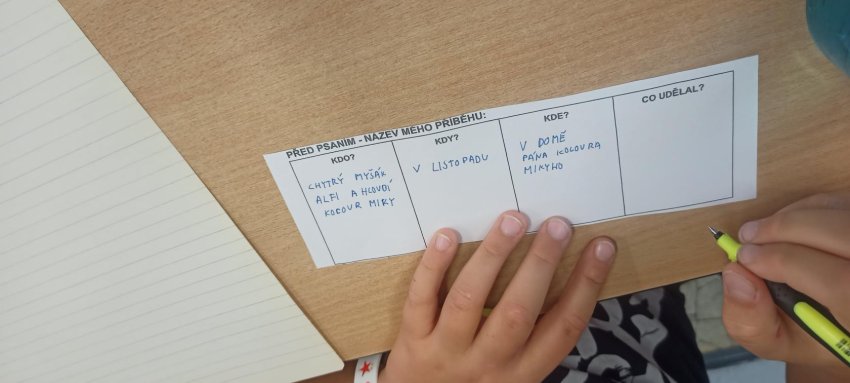 PŘED PSANÍM - NÁZEV MÉHO PŘÍBĚHU:
KDO?
CHYTRÝ MYŠÁK
ALFI A HLOUDÍ
KOCOUR MIKY
KDY?
V LISTOPADU
KDE?
V DOMĚ
PÁNA KOCOURA
MIKYHO
CO UDĚLAL?